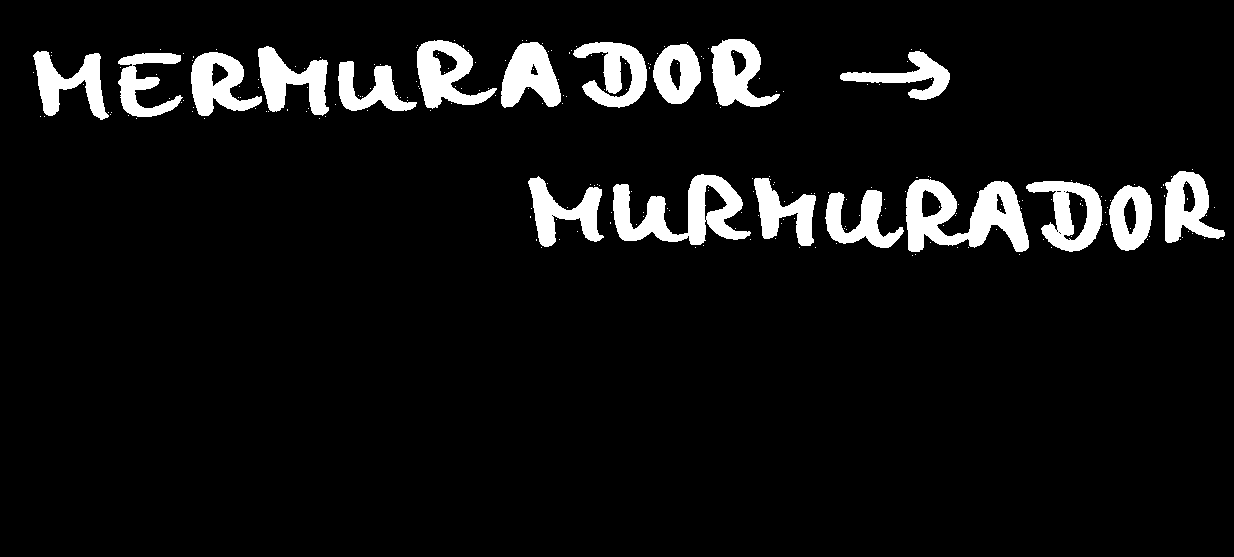 MERMURADOR →
MURMURADOR